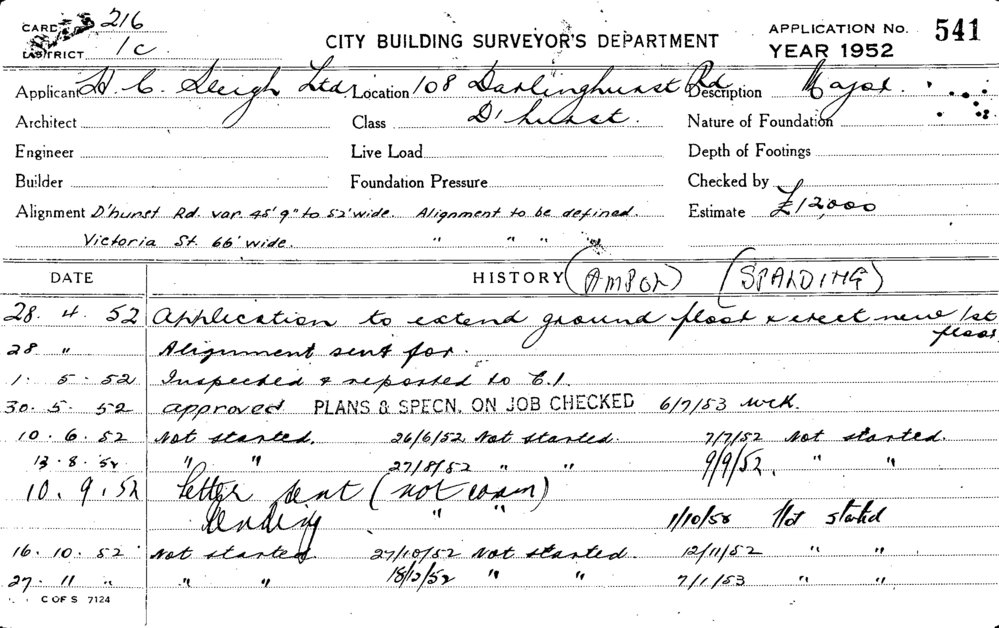 CARD 216
DISTRICT 1c
CITY BUILDING SURVEYOR'S DEPARTMENT
APPLICATION No. 541
YEAR 1952
Applicant H. C. Sleigh Ltd. Location 108 Darlinghurst Rd Description Major.
Architect Class D'hurst. Nature of Foundation
Engineer Live Load Depth of Footings
Builder Foundation Pressure Checked by
Alignment D'hurst Rd. var. 45' 9" to 52' wide. Alignment to be defined. Estimate £12,000
Victoria St. 66' wide. " " " "
DATE HISTORY (AMPOL) (SPALDING)
28. 4. 52 Application to extend ground floor & erect new 1st floor
28 " Alignment sent for.
1. 5. 52 Inspected & reported to C.I.
30. 5. 52 approved PLANS & SPECN. ON JOB CHECKED 6/7/53
10. 6. 52 Not started. 26/6/52 Not started. 7/7/52 Not started.
13. 8. 52 " " 27/8/52 " " 9/9/52. " "
10. 9. 52 Letter sent (not comm)
pending " " 1/10/52 Not started
16. 10. 52 Not started 27/10/52 Not started. 12/11/52 " "
27. 11 " " " 18/12/52 " " 7/1/53 " "
C OF S 7124